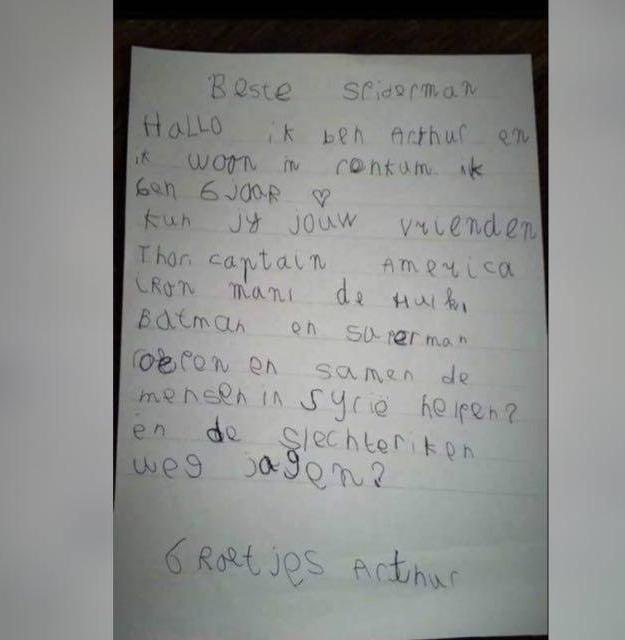 Beste Spiderman
HALLO ik ben Arthur en
ik woon in renkum ik
ben 6 JAAR ♡
kun jy jouw vrienden
Thor, captain America
iRon man, de Hulk,
Batman en superman
roepen en samen de
mensen in Syrië helpen?
en de slechteriken
weg jagen?
GRoetjes Arthur